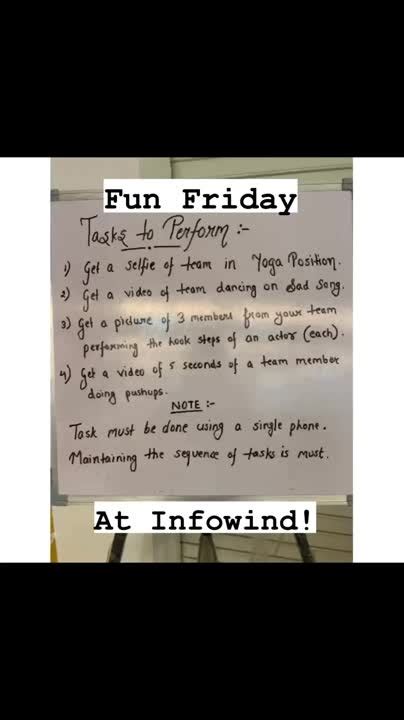 Fun Friday
Tasks to Perform :-
1) Get a selfie of team in Yoga Position.
2) Get a video of team dancing on Sad Song.
3) Get a picture of 3 members from your team
performing the hook steps of an actor (each).
4) Get a video of 5 seconds of a team member
doing pushups.
NOTE :-
Task must be done using a single phone.
Maintaining the sequence of tasks is must.
At Infowind!